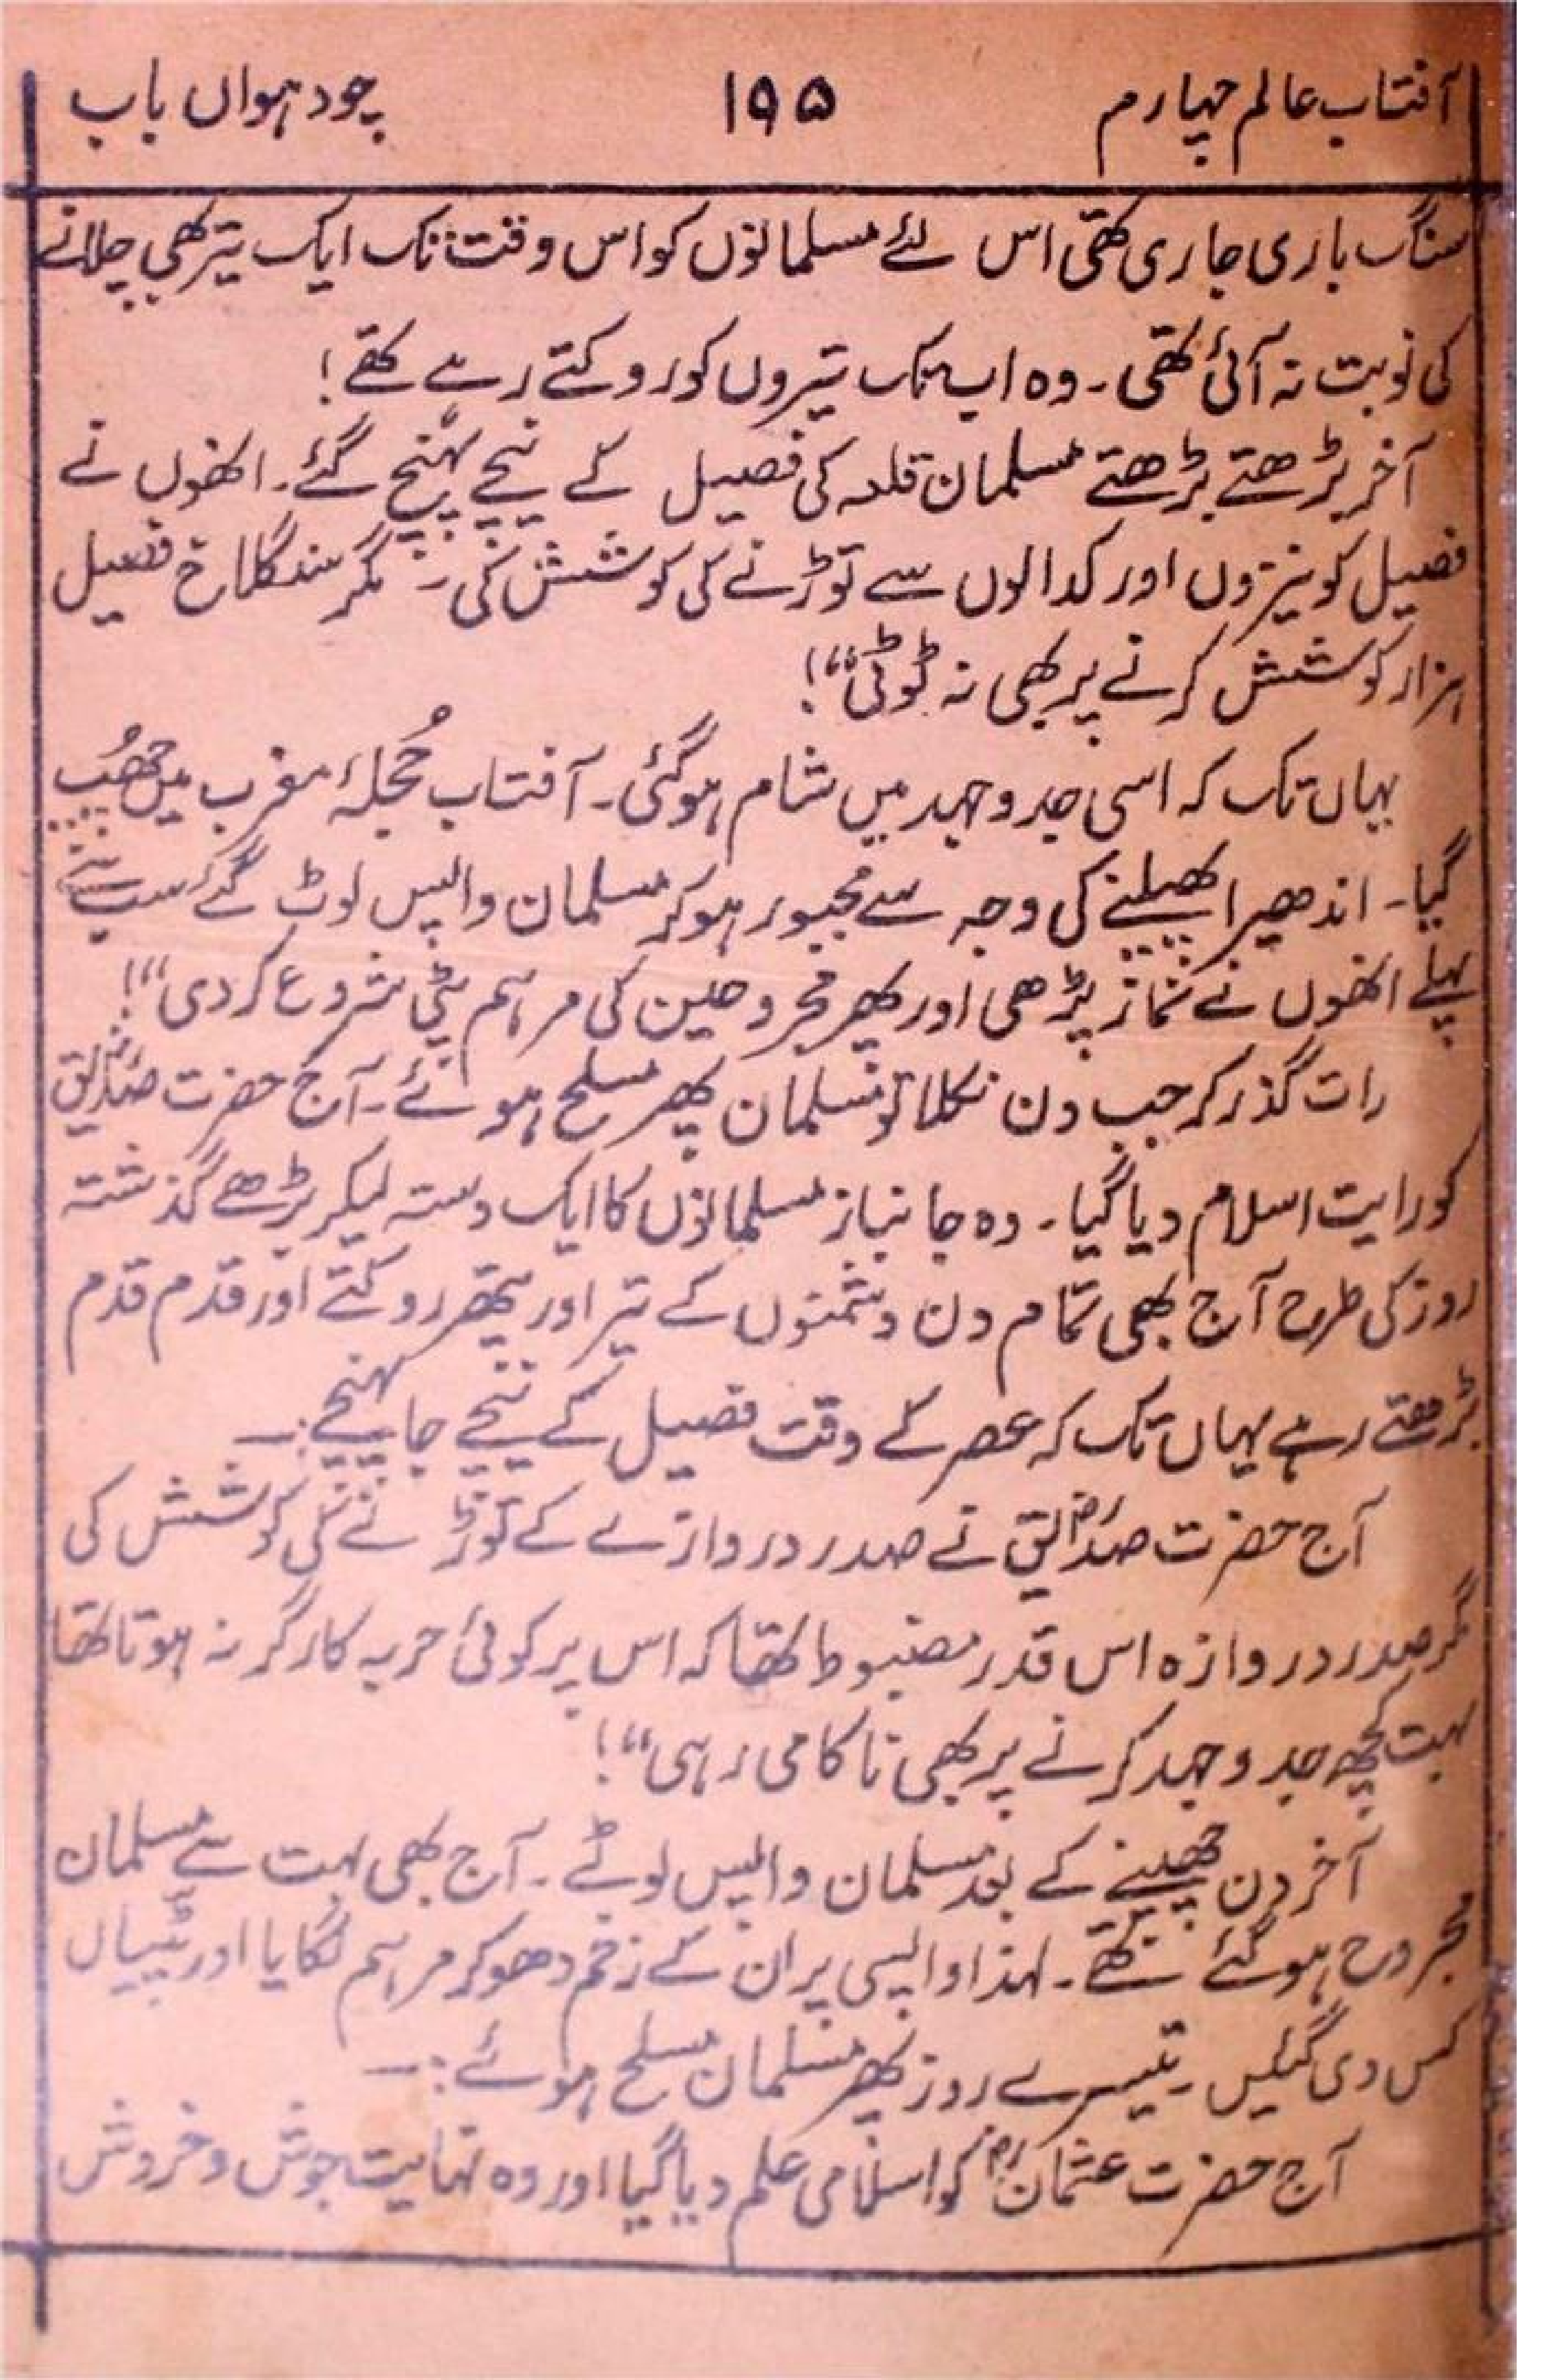 آفتاب عالم چہارم ۱۹۵ چودہواں باب
سنگ باری جاری تھی اس لئے مسلمانوں کو اس وقت تک ایک تیر بھی چلانے
کی نوبت نہ آئی تھی۔ وہ اب تک تیروں کو روکتے رہے تھے!
آخر بڑھتے بڑھتے مسلمان قلعہ کی فصیل کے نیچے پہنچ گئے۔ انھوں نے
فصیل کو نیزوں اور کدالوں سے توڑنے کی کوشش کی۔ مگر سنگلاخ فصیل
ہزار کوشش کرنے پر بھی نہ ٹوٹی“!
یہاں تک کہ اسی جدوجہد میں شام ہو گئی۔ آفتاب حُجلۂ مغرب میں چھُپ
گیا۔ اندھیرا پھیلنے کی وجہ سے مجبور ہو کر مسلمان واپس لوٹ گئے سب سے
پہلے انھوں نے نماز پڑھی اور پھر مجروحین کی مرہم پٹی شروع کردی“!
رات گذر کر جب دن نکلا تو مسلمان پھر مسلح ہوئے۔ آج حضرت صدیقؓ
کو رایت اسلام دیا گیا۔ وہ جانباز مسلمانوں کا ایک دستہ لیکر بڑھے گذشتہ
روز کی طرح آج بھی تمام دن دشمنوں کے تیر اور پتھر روکتے اور قدم قدم
بڑھتے رہے یہاں تک کہ عصر کے وقت فصیل کے نیچے جا پہنچے:۔
آج حضرت صدیقؓ نے صدر دروازے کے توڑنے کی کوشش کی
مگر صدر دروازہ اس قدر مضبوط تھا کہ اس پر کوئی حربہ کارگر نہ ہوتا تھا
بہت کچھ جدوجہد کرنے پر بھی ناکامی رہی“!
آخر دن چھپنے کے بعد مسلمان واپس لوٹے۔ آج بھی بہت سے مسلمان
مجروح ہو گئے تھے۔ لہذا واپسی پر ان کے زخم دھو کر مرہم لگایا اور پٹیاں
کس دی گئیں۔ تیسرے روز پھر مسلمان مسلح ہوئے:۔
آج حضرت عثمانؓ کو اسلامی علم دیا گیا اور وہ نہایت جوش و خروش